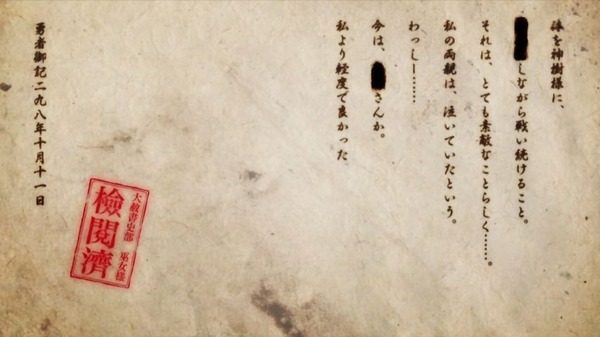 体を神樹様に、
しながら戦い続けること。
それは、とても素敵なことらしく……。
私の両親は、泣いていたという。
わっしー……
今は、 さんか。
私より軽度で良かった
勇者御記二九八年十月十一日
大赦書史部 巫女様
検閲済